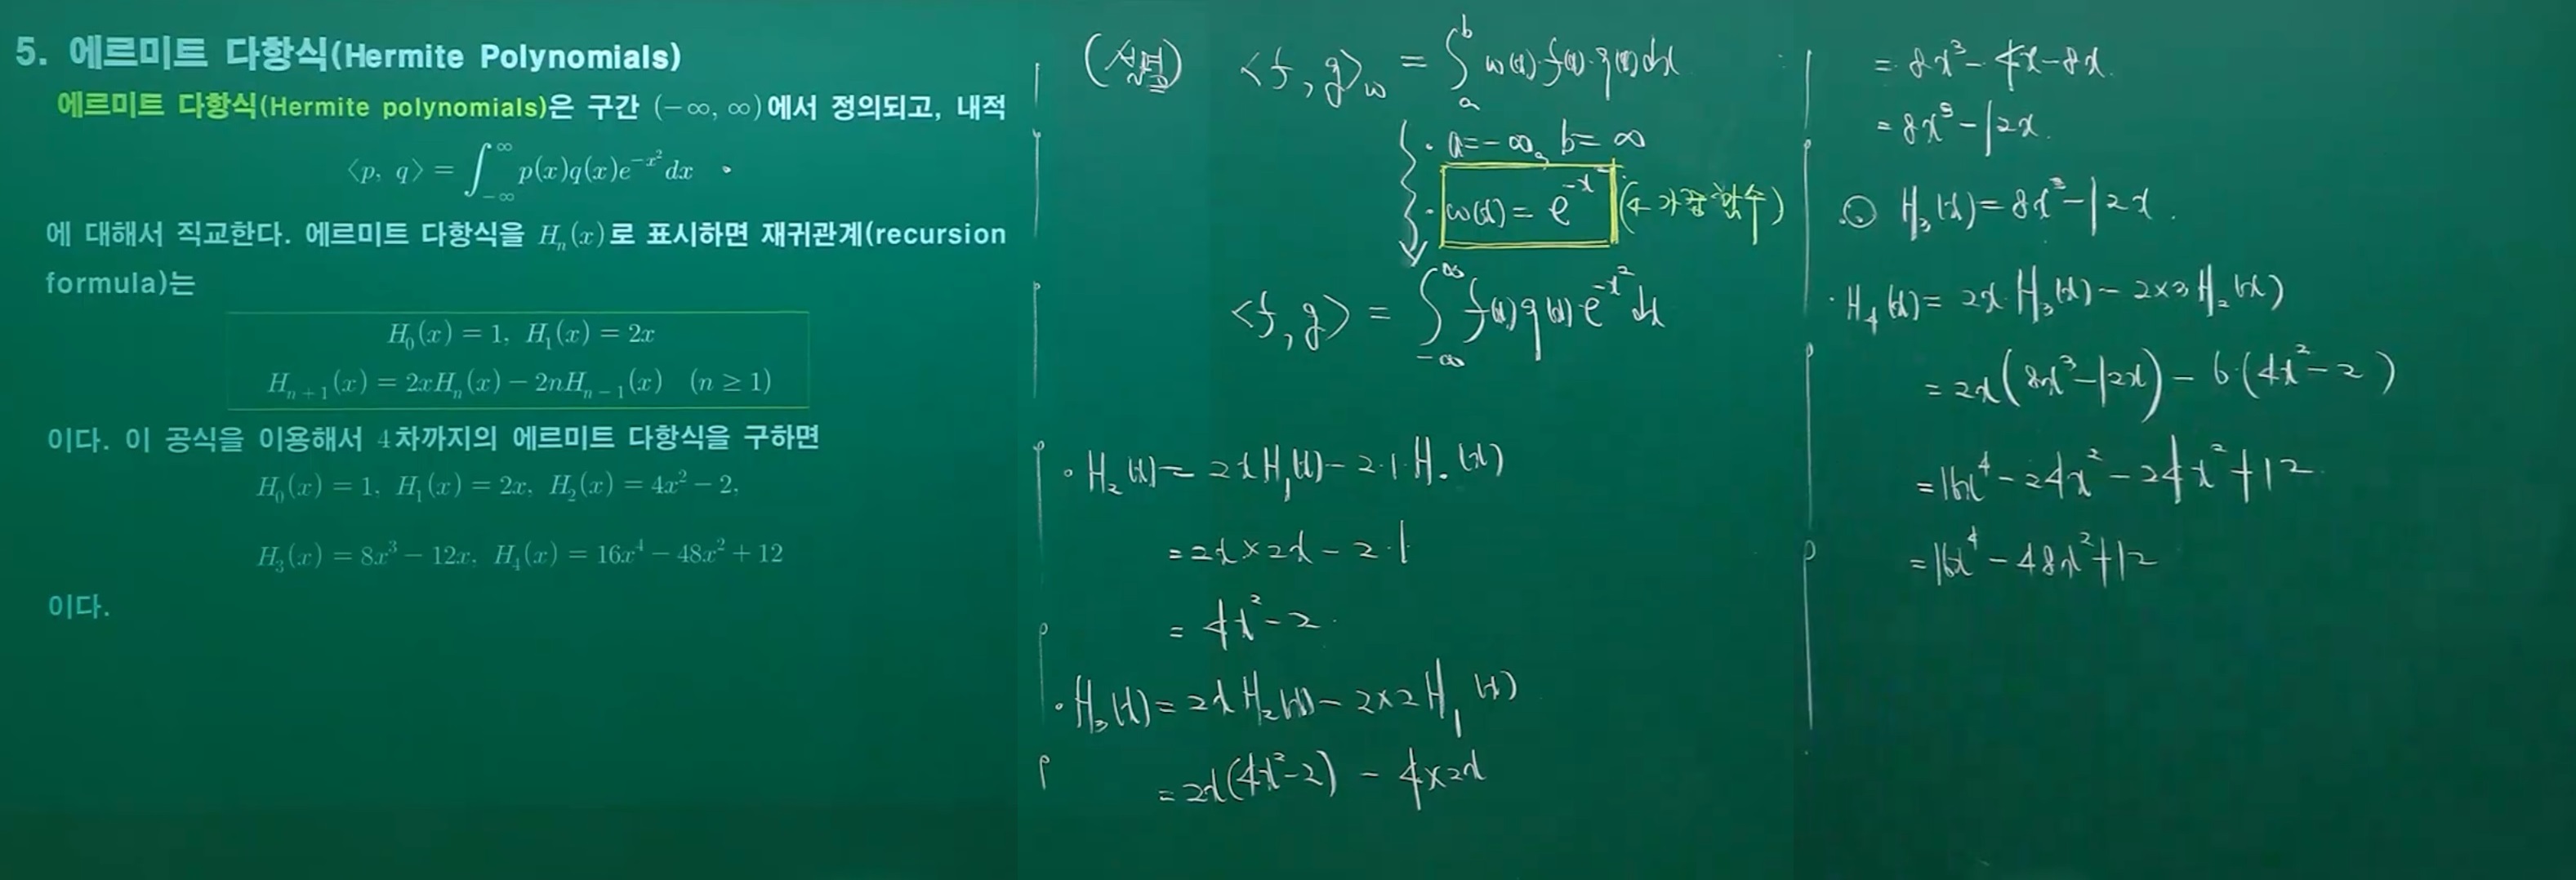 5. 에르미트 다항식(Hermite Polynomials)
에르미트 다항식(Hermite polynomials)은 구간 (−∞, ∞)에서 정의되고, 내적
⟨p, q⟩ = ∫_{−∞}^{∞} p(x)q(x)e^{−x²}dx
에 대해서 직교한다. 에르미트 다항식을 H_n(x)로 표시하면 재귀관계(recursion
formula)는
H_0(x) = 1, H_1(x) = 2x
H_{n+1}(x) = 2xH_n(x) − 2nH_{n−1}(x) (n ≥ 1)
이다. 이 공식을 이용해서 4차까지의 에르미트 다항식을 구하면
H_0(x) = 1, H_1(x) = 2x, H_2(x) = 4x² − 2,
H_3(x) = 8x³ − 12x, H_4(x) = 16x⁴ − 48x² + 12
이다.
(설명) <f, g>_w = ∫_a^b w(x)·f(x)·g(x)dx
· a=−∞, b=∞
· w(x) = e^{−x²} (← 가중함수)
<f, g> = ∫_{−∞}^{∞} f(x)g(x)·e^{−x²}dx
· H_2(x) = 2xH_1(x) − 2·1·H_0(x)
= 2x × 2x − 2·1
= 4x² − 2.
· H_3(x) = 2xH_2(x) − 2×2H_1(x)
= 2x(4x²−2) − 4×2x
= 8x³ − 4x − 8x.
= 8x³ − 12x.
∴ H_3(x) = 8x³ − 12x.
· H_4(x) = 2x·H_3(x) − 2×3H_2(x)
= 2x(8x³−12x) − 6·(4x²−2)
= 16x⁴ − 24x² − 24x² + 12.
= 16x⁴ − 48x² + 12